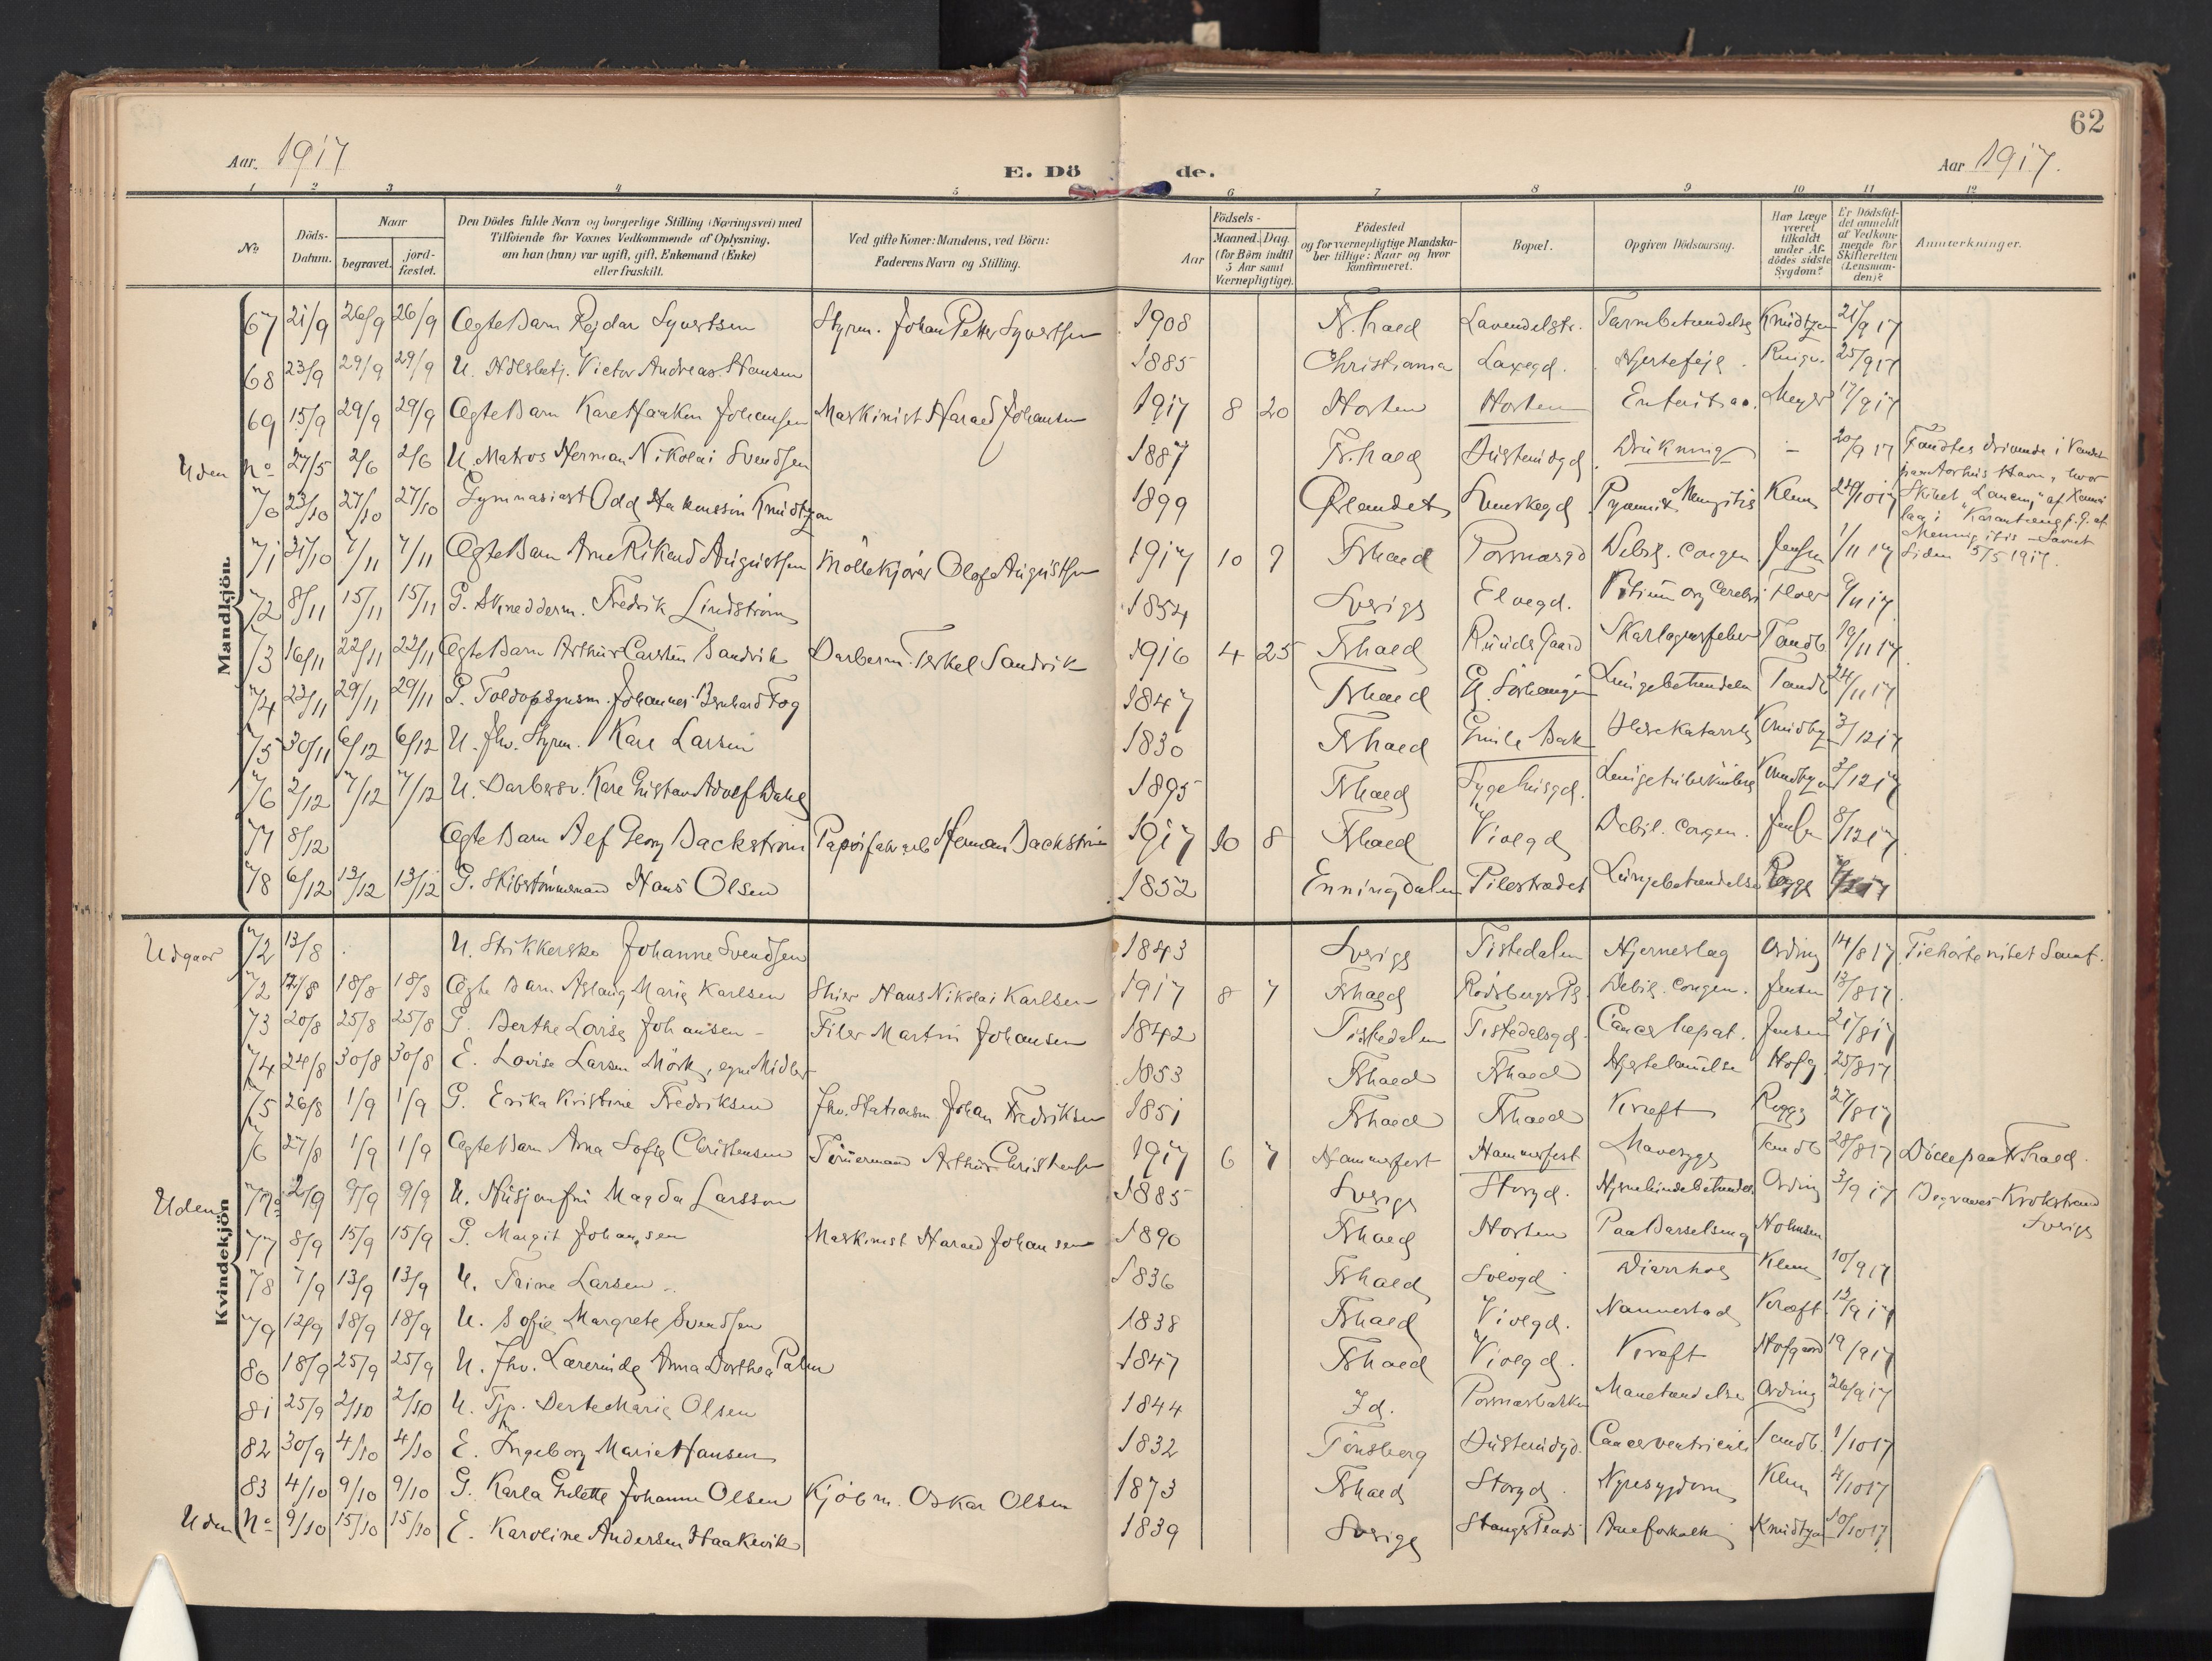 62
Aar. 1917
E. Dö de.
Aar 1917.
1 2 3 4 5 6 7 8 9 10 11 12
No
Döds-Datum.
Naar
begravet.
jord-fæstet.
Den Dödes fulde Navn og borgerlige Stilling (Næringsvei) med
Tilföiende for Voxnes Vedkommende af Oplysning,
om han (hun) var ugift, gift, Enkemand (Enke)
eller fraskilt.
Ved gifte Koner: Mandens, ved Börn:
Faderens Navn og Stilling.
Aar
Födsels-
Maaned. Dag.
(for Börn indtil
5 Aar samt
Værnepligtige).
Födested
og for værnepligtige Mandska-
ber tillige: Naar og hvor
konfirmeret.
Bopæl.
Opgiven Dödsaarsag.
Har Læge
været
tilkaldt
under Af-
dödes sidste
Sygdom?
Er Dödsfal-
det anmeldt
af Vedkom-
mende for
Skifteretten
(Lensman-
den)?
Anmærkninger.
Mandkjön.
67 21/9 26/9 26/9 Ægte Barn Rejdar Syvertsen Styrm. Johan Petter Syvertsen 1908 Fr.hald Lavendelstr. Tarmbetændelse Knudtzon 21/9 17
68 23/9 29/9 29/9 U. Hdlsbetj. Victor Andreas Hansen 1885 Christiania Laxegd. Hjertefejl 25/9 17
69 15/9 29/9 29/9 Ægte Barn Kare Haakon Johansen Maskinist Harald Johansen 1917 8 20 Horten Horten Meyer 17/9 17
Uden No 27/5 2/6 2/6 U. Matros Herman Nikolai Svendsen 1887 Fr.hald Drukning - 20/9 17 Fandtes drivende i Vandet
paa Aarhus Havn, hvor
Skibet
laa i Karantæne p. G. af
Meningitis - Savnet
siden 15/5 1917.
70 23/10 27/10 27/10 Gymnasiast Odd Haakonsson Knudtzon 1899 Ørlandet Pyæmisk Mengitis Klem 24/10 17
71 31/10 7/11 7/11 Ægte Barn Arne Rikard Augustsen Möllekjører Olof Augustsen 1917 10 9 Frhald Debil. congen Jensen 1/11 17
72 8/11 15/11 15/11 G. Skredderm. Fredrik Lindström 1854 Sverige Elvegd. Vitium org Cerebri 9/11 17
73 16/11 22/11 22/11 Ægte Barn Arthur Carsten Sandvik Barberm. Terkel Sandvik 1916 4 25 Frhald Ruuds Gaard Skarlagensfeber Tandb 19/11 17
74 23/11 29/11 29/11 G. Toldopsynsm. Johannes Bernhard Fog 1847 Frhald Lungebetændelse Tandb 24/11 17
75 30/11 6/12 6/12 U. fhv. Styrm. Karl Larsen 1830 Frhald Knudtzon 3/12 17
76 2/12 7/12 7/12 U. Barbersv. Karl Gustav Adolf Dahl 1895 Frhald Sygehusgd. Lungetuberkulose Knudtzon 3/12 17
77 8/12 Ægte Barn Alf Georg Backström Papirfabr.arb Herman Backström 1917 10 8 Frhald Violgd Debil. congen. Jensen 8/12 17
78 6/12 13/12 13/12 G. Skibstömmermand Hans Olsen 1852 Enningdalen Pilestrædet Lungebetændelse Rogge
Kvindekjön
Udgaar 72 13/8 U. Strikkerske Johanne Svendsen 1843 Sverige Tistedalen Hjerneslag Ording 14/8 17 Tilhörte
72 12/8 18/8 18/8 Ægte Barn Aslaug Marie Karlsen Sliver Hans Nikolai Karlsen 1917 8 7 Frhald Rødsbergs Pl. Debil. congen. Jensen 13/8 17
73 20/8 25/8 25/8 G. Berthe Lovise Johansen Filer Martin Johansen 1842 Tistedalen Tistedalsgd. Cancer hepat. Jensen 21/8 17
74 24/8 30/8 30/8 E. Lovise Larsen Mörk, egne Midler 1853 Frhald Frhald Hjertelamelse Hofg 25/8 17
75 26/8 1/9 1/9 G. Erika Kristine Fredriksen Fhv. Stationsm Johan Fredriksen 1851 Frhald Frhald Kræft Rogge 27/8 17
76 27/8 1/9 1/9 Ægte Barn Anna Sofie Christensen Tömmermand Arthur Christensen 1917 6 7 Hammerfest Hammerfest Mavesyge Tandb 28/8 17 Döde paa Frhald.
Uden No 2/9 9/9 9/9 U. Husjomfru Magda Larsson 1885 Sverige Storgd. Hjernehindebetændelse Ording 3/9 17 Begraves Krokstrand
Sverige
77 8/9 15/9 15/9 G. Margit Johansen Maskinist Harald Johansen 1890 Frhald Horten Paa Barselseng Holmsen
78 7/9 13/9 13/9 U. Trine Larsen 1836 Frhald Diarrhoe Klem 10/9 17
79 12/9 18/9 18/9 U. Sofie Margrete Svendsen 1838 Frhald Violgd. Kræft 13/9 17
80 18/9 25/9 25/9 U. fhv. Lærerinde Anna Dorthea Palm 1847 Frhald Violgd. Kræft Hofgaard 19/9 17
81 25/9 2/10 2/10 U. Tjp. Berte Marie Olsen 1844 Id. Ording 26/9 17
82 30/9 4/10 4/10 E. Ingeborg Marie Hansen 1832 Tönsberg Cancer ventriculi Tandb. 1/10 17
83 4/10 9/10 9/10 G. Karla Gulette Johanne Olsen Kjöbm. Oskar Olsen 1873 Frhald Storgd. Nyresygdom Klem 4/10 17
Uden No 9/10 15/10 15/10 E. Karoline Andersen Haakevik 1839 Sverige Stangs Plads Aareforkalkn Knudtzon 10/10 17